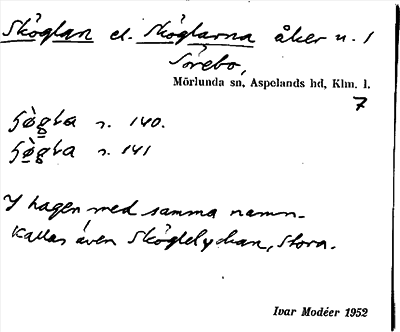 Sköglan el. Sköglarna åker n. 1
Sörebo,
Mörlunda sn, Aspelands hd, Klm. l.
7
s. 140.
s. 141
I hagen med samma namn.
Kallas även Stora.
Ivar Modéer 1952